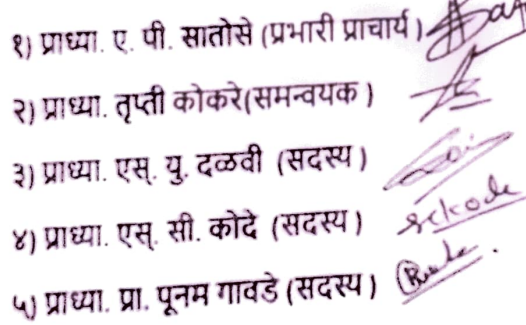 १) प्राध्या. ए. पी. सातोसे (प्रभारी प्राचार्य)
२) प्राध्या. तृप्ती कोकरे(समन्वयक )
३) प्राध्या. एस्. यु. दळवी (सदस्य )
४) प्राध्या. एस्. सी. कोदे (सदस्य ) sckode
५) प्राध्या. प्रा. पूनम गावडे (सदस्य )